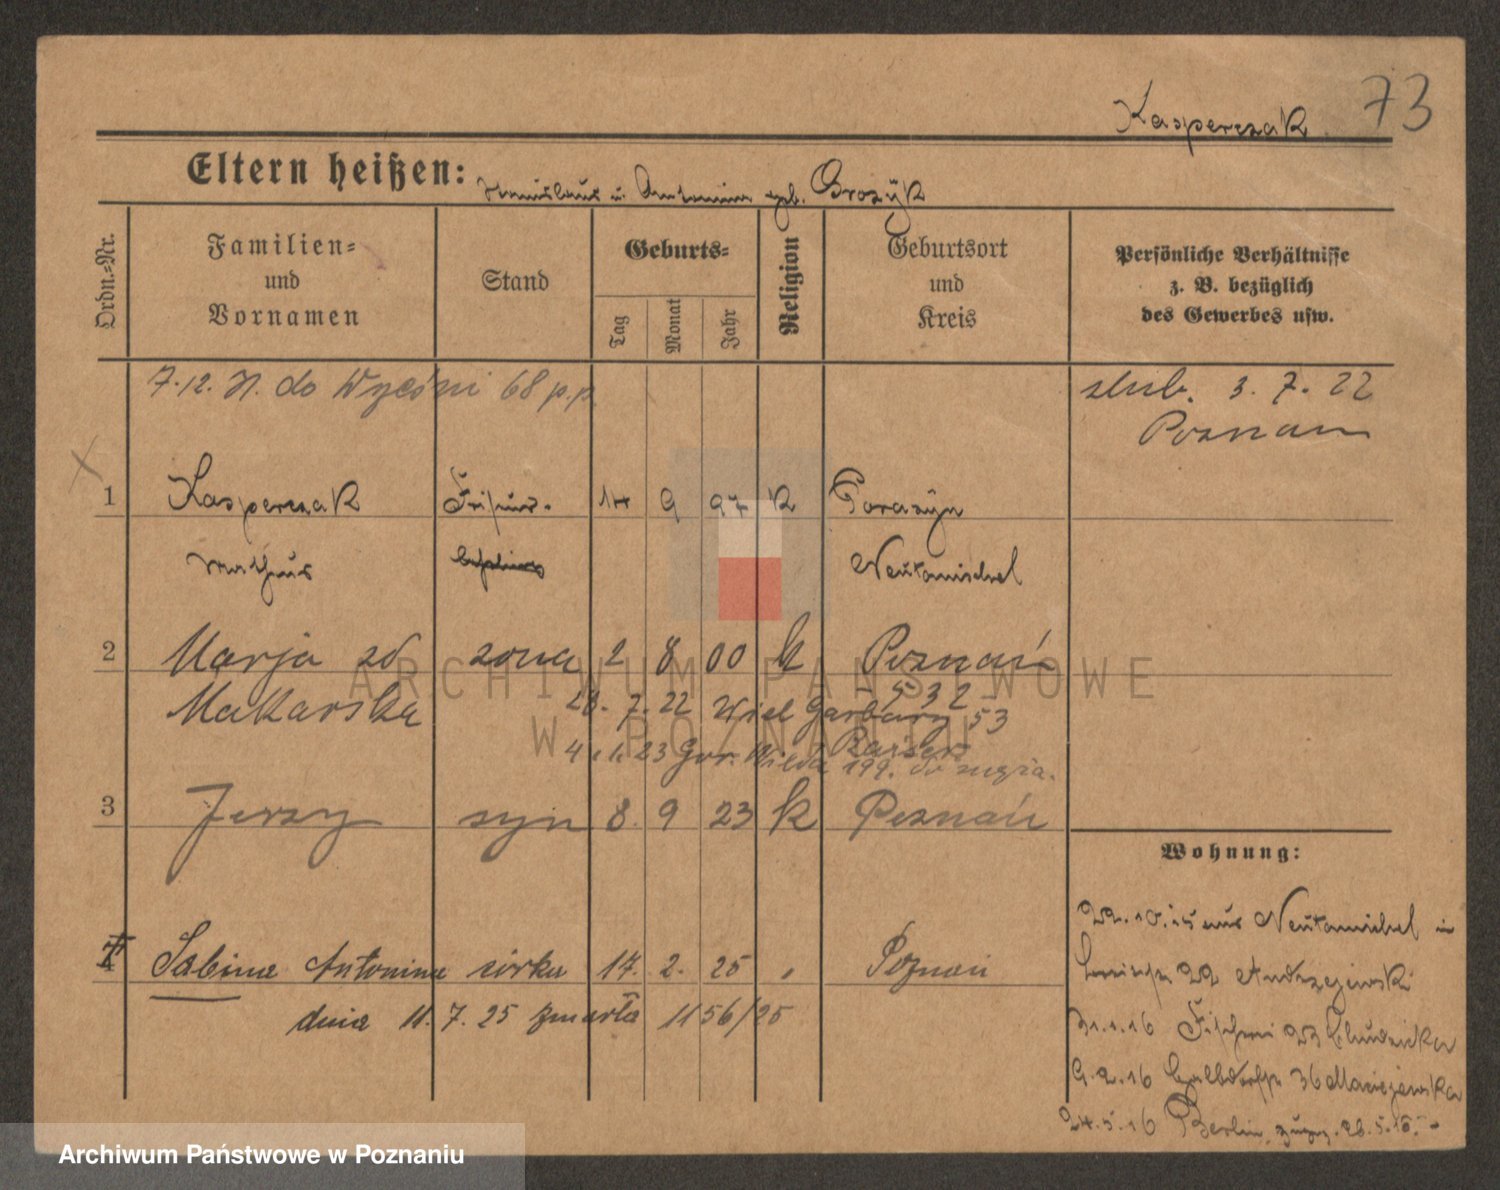 Kasperczak 73
Eltern heißen: Stanislaus u. Antonina geb. Grozyk
Ordn.=Nr.
Familien=
und
Vornamen
Stand
Geburts=
Tag
Monat
Jahr
Religion
Geburtsort
und
Kreis
Persönliche Verhältnisse
z. B. bezüglich
des Gewerbes usw.
7.12. do 68 p.p.
slub. 3. 7. 22
Poznan
1 Kasperczak Friseur. 14 9 97 k Porazyn
Neutomischel
2 Marja zd zona 2 8 00 k Poznań
Makarska
28. 7. 22 Wiel Garbary 53
4. 1. 23 Gor. Wilda 199.
3 Jerzy syn 8. 9 23 k Poznań
4 Sabina Antonina córka 17. 2. 25 " Poznań
dnia 11. 7. 25 zmarła 1156/25
Wohnung:
22.10.15 aus Neutomischel in
22 Andrzejewski
31.1.16 Fischerei 23
9.2.16 36 Maciejewska
24.5.16 Berlin,
ARCHIWUM PAŃSTWOWE
W POZNANIU
Archiwum Państwowe w Poznaniu